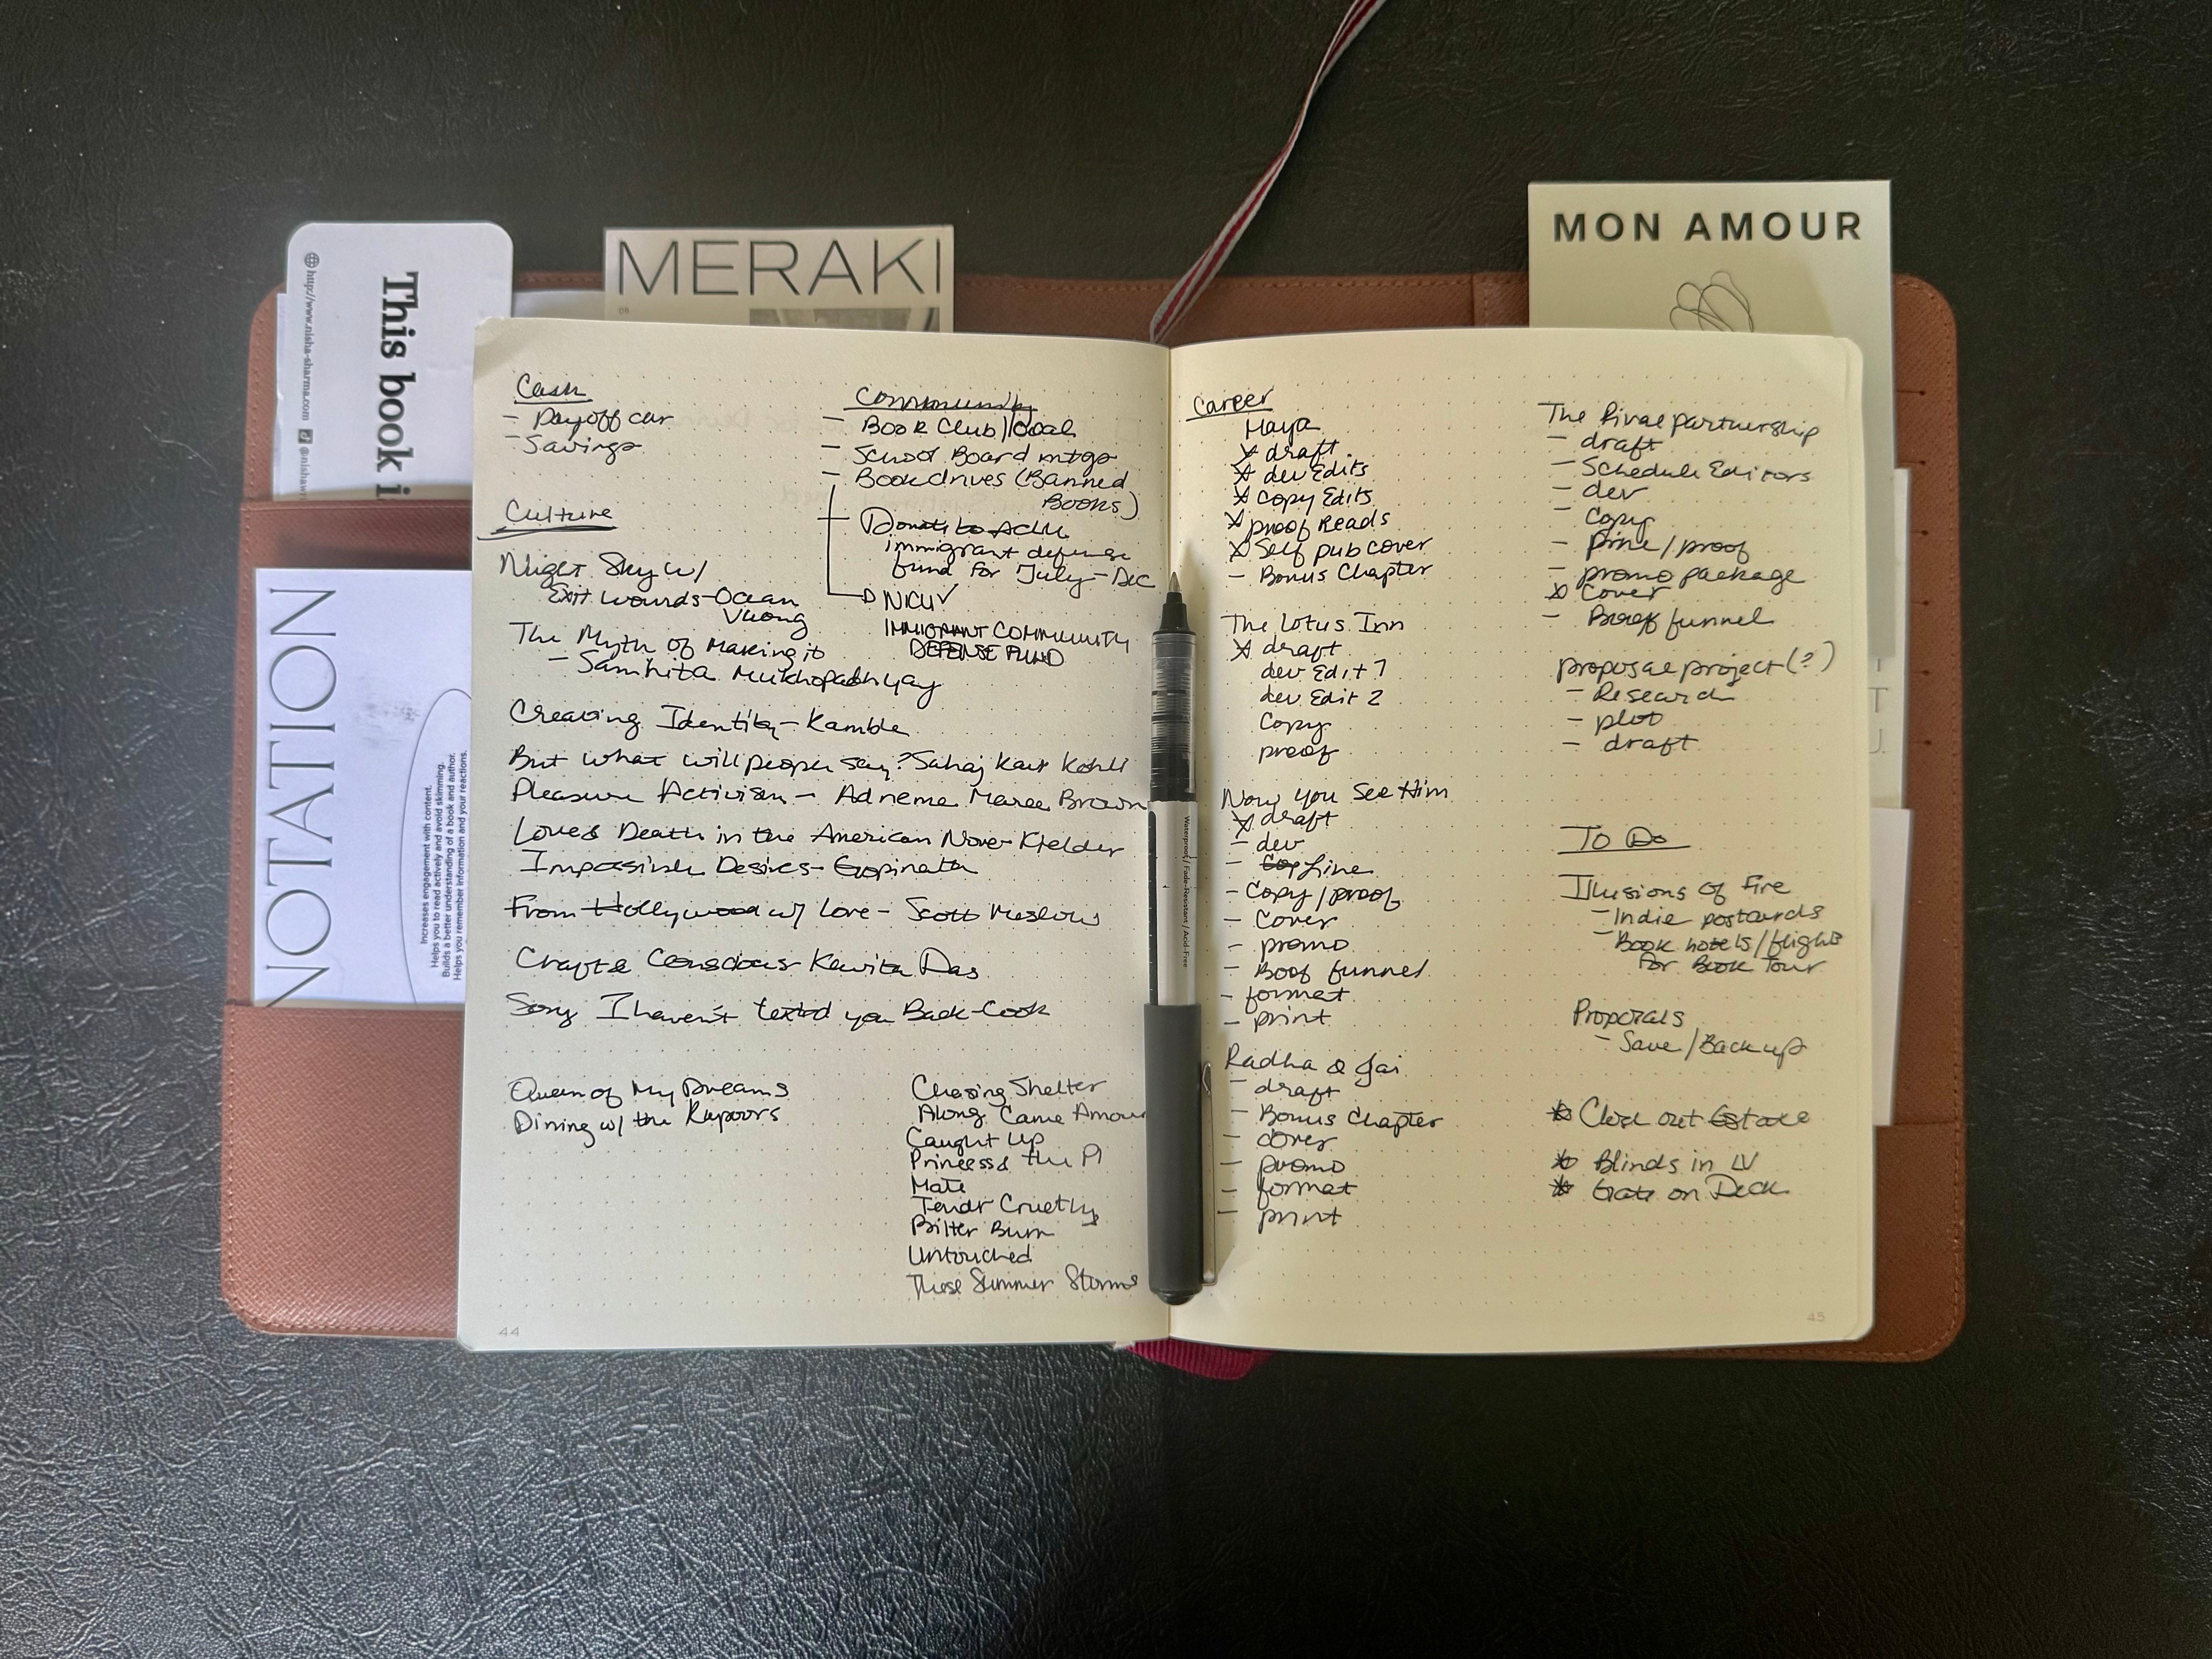 MERAKI
MON AMOUR
This book i
http://www.nisha-sharma.com
NOTATION
Increases engagement with content.
Helps you to read actively and avoid skimming.
Builds a better understanding of a book and author.
Helps you remember information and your reactions.
Cash
- Payoff car
- Savings
Community
- Book Club/local
- School Board mtgs
- Bookdrives (Banned
Books)
Donate to ACLU
immigrant defense
fund for July - Dec
NICU ✓
IMMIGRANT COMMUNITY
DEFENSE FUND
Culture
Night Sky w/
Exit Wounds - Ocean
Vuong
The Myth of Making it
- Samhita Mukhopadhyay
Creating Identity - Kamble
But what will people say? Sahaj Kaur Kohli
Pleasure Activism - Adrienne Maree Brown
Love & Death in the American Novel - Fielder
Impossible Desires - Gopinath
From Hollywood w/ Love - Scott Meslow
Craft & Conscious - Kavita Das
Sorry I haven't texted you Back - Cook
Queen of My Dreams
Dining w/ the Kapoors
Chasing Shelter
Along Came Amour
Caught Up
Princess & the PI
Mate
Tendr Cruelty
Bitter Burn
Untouched
These Summer Storms
44
Career
Maya
x draft
x dev Edits
x Copy Edits
x proof Reads
x Self pub cover
- Bonus Chapter
The Lotus Inn
x draft
dev Edit 1
dev Edit 2
Copy
proof
Now You See Him
x draft
- dev
- Line
- Copy/proof
- Cover
- promo
- Boof funnel
- format
- print
Radha & Jai
- draft
- Bonus Chapter
- cover
- promo
- format
- print
The Rival Partnership
- draft
- Schedule Editors
- dev
- Copy
- prine/proof
- promo package
x Cover
- funnel
proposal project (?)
- Research
- plot
- draft
To Do
Illusions of Fire
- Indie postcards
- Book hotels/flights
for Book Tour
Proposals
- Save/Back up
* Close out Estate
* Blinds in LV
* Gate on Deck
45
Waterproof / Fade-Resistant / Acid-Free